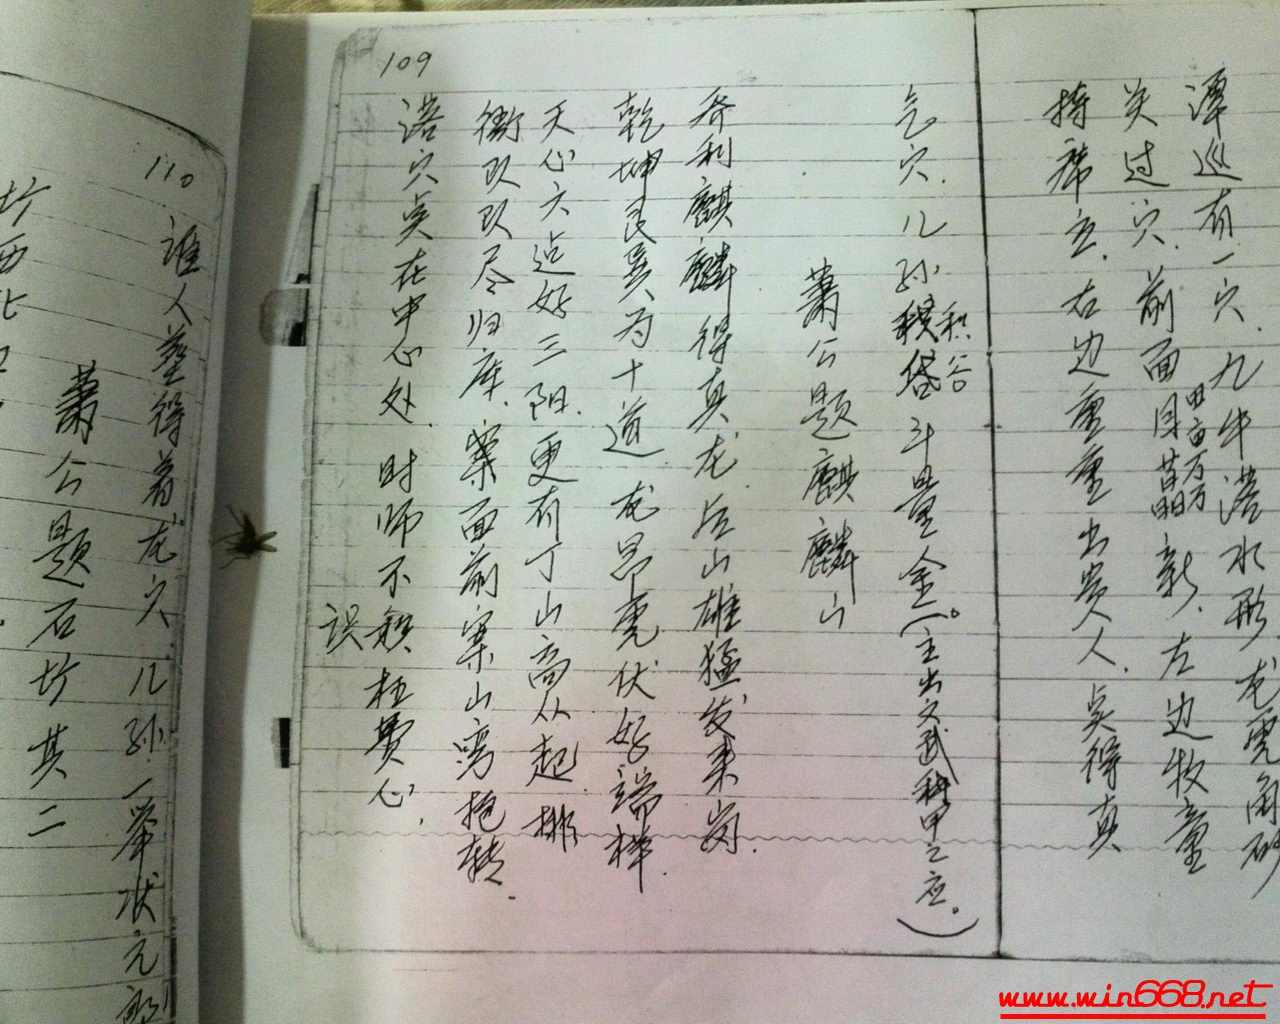 潭巡有一穴.九牛港水形.龙虎角砂
关过穴.前面目昔朝新.左边牧童
田亩万万
持席立.右边重重出贵人.点得真
气穴.儿孙积袋斗量金.(主出文武科甲之应。)
积谷
萧公题麒麟山
吞利麒麟得真龙后山雄猛发来岗.
乾坤艮巽为十道.龙昂虎伏好端祥.
天心六边好三阳.更有丁山高从起.排
衙队队尽归库.案面前案山湾抱转.
109
落穴点在中心处.时师不识枉费心.
误
110
谁人塟得着龙穴.儿孙一举状元郎
萧公题石圹其二
圹西北
www.win668.net